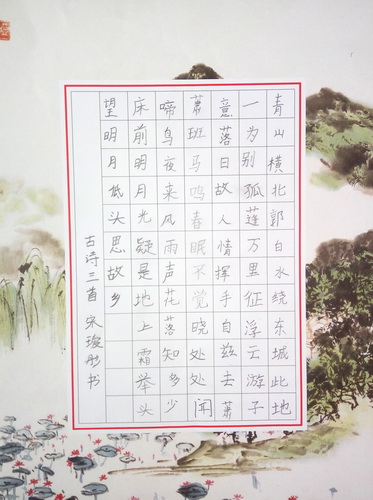 青山横北郭白水绕东城此地
一为别孤蓬万里征浮云游子
意落日故人情挥手自兹去萧
萧班马鸣春眠不觉晓处处闻
啼鸟夜来风雨声花落知多少
床前明月光疑是地上霜举头
望明月低头思故乡
古诗三首 宋璇彤书